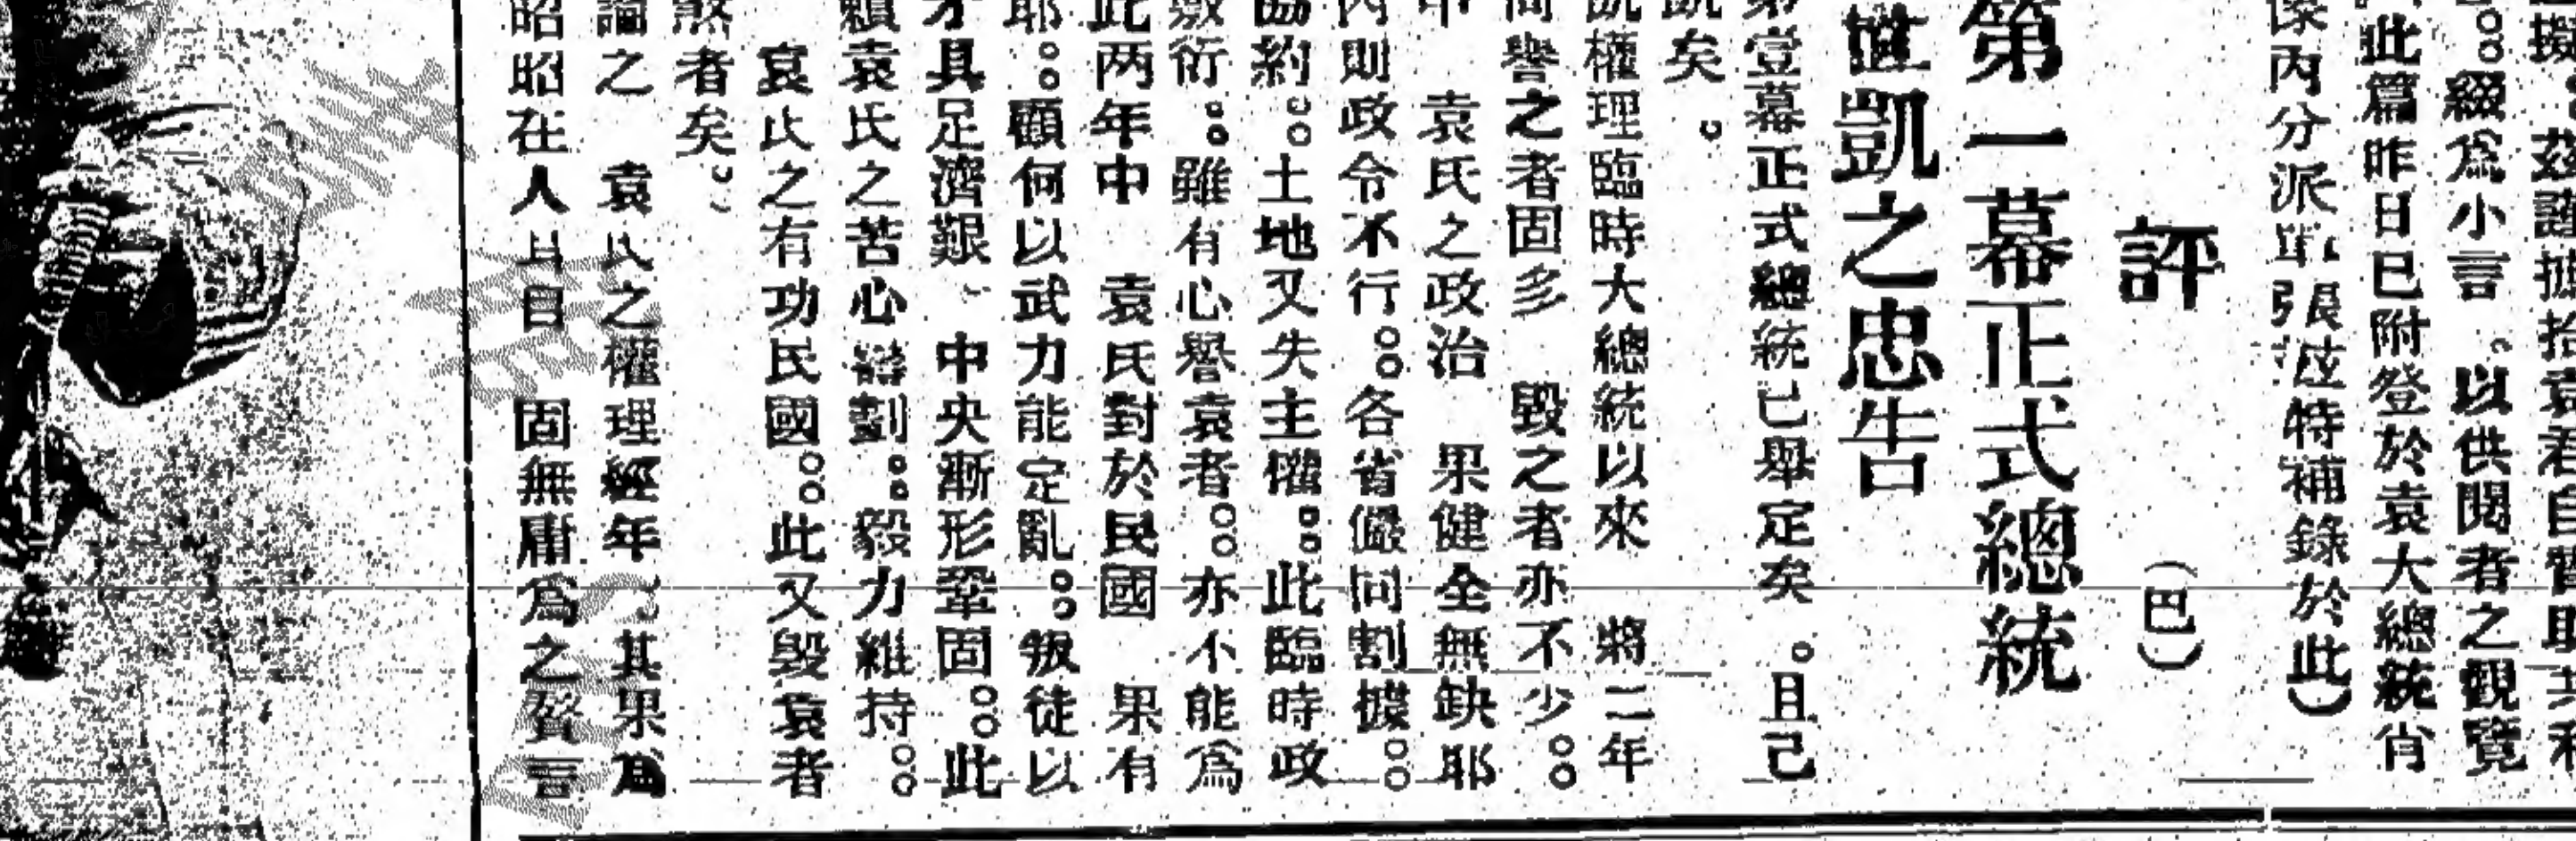 擬。茲謹據拾袁君自督
。。綴爲小言。以供閱者之觀覽
此篇昨日已附登於袁大總統肖
像內分派 特補錄於此)
評 (巴)
第一幕正式總統
世凱之忠告
第壹幕正式總統已舉定矣。且己
凱矣。
凱權理臨時大總統以來 將二年
譽之者固多 毀之者亦不少。。
中 袁氏之政治 果健全無缺耶
內則政令不行。。各省儼同割據。。
協約。。土地又失主權。。此臨時政
敷衍。。雖有心譽袁者。。亦不能爲
此两年中 袁氏對於民國 果有
耶。。顧何以武力能定亂。。叛徒以
才具足濟艱、中央漸形鞏固。。此
賴袁氏之苦心籌劃。。毅力維持。。
袁氏之有功民國。。此又毀袁者
煞者矣。。
論之 袁氏之權理經年、其果爲
昭昭在人耳目 固無庸爲之贅言